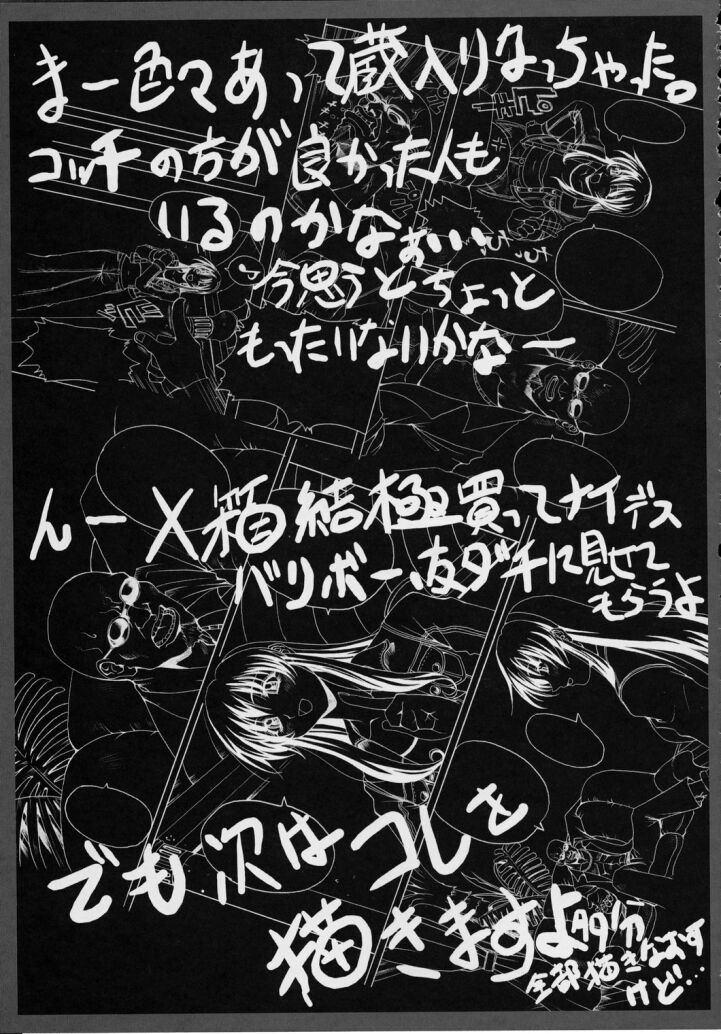 まー色々あって蔵入りなっちゃった。
コッチの方が良かった人も
いるのかなぁ、、、
今思うとちょっと
もったいないかなー
んーX箱結極買ってナイデス
バリボー、友ダチに見せて
もらうよ
でも次はコレを
描きますよ多分
全部描きなおす
けど…